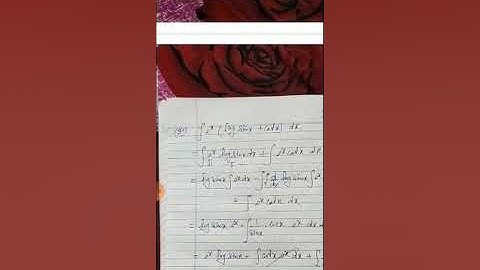 ∫ eˣ [log sinx + cotx] dx
= ∫ eˣ log sinx dx + ∫ eˣ cotx dx
= log sinx ∫ eˣ dx - ∫ [d/dx log sinx ∫ eˣ
+ ∫ eˣ cotx dx
= log sinx eˣ - ∫ 1/sinx . cosx eˣ dx +
= eˣ log sinx - ∫ cotx eˣ dx + ∫